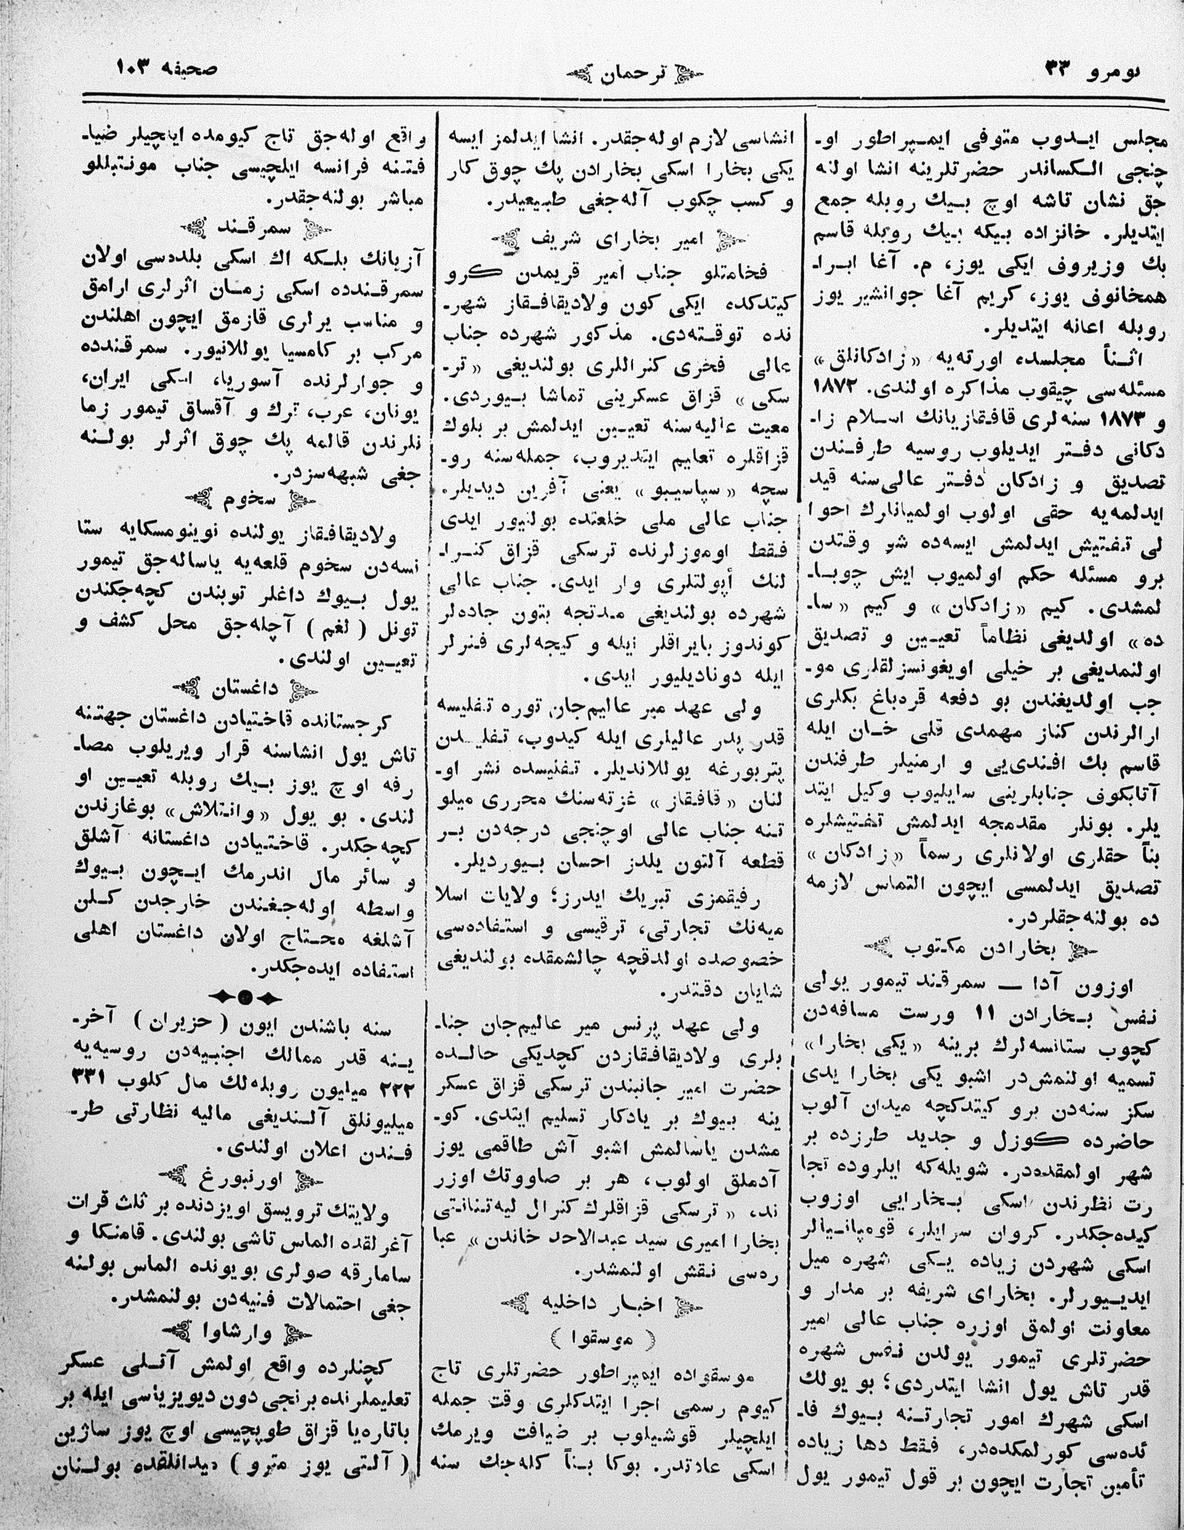 نومرو ٣٣
ترجمان
صحيفه ١٠٣
مجلس ايدوب متوفى ايمپراطور او-
چنجى الكساندر حضرتلرينه انشا اولنه
جق نشان تاشه اوچ بيك روبله جمع
ايتديلر. خانزاده بيكه بيك روبله قاسم
بك وزيروف ايكى يوز، م. آغا ابرا-
همخانوف يوز، كريم آغا جوانشير يوز
روبله اعانه ايتديلر.
اثنأ مجلسده اورته‌يه «زادكانلق»
مسئله‌سى چيقوب مذاكره اولندى. ١٨٧٢
و ١٨٧٣ سنه‌لرى قافقازيانك اسلام زا-
دكانى دفتر ايديلوب روسيه طرفندن
تصديق و زادكان دفتر عالى‌سنه قيد
ايدلمه‌يه حقى اولوب اولميانلرك احوا
لى تفتيش ايدلمش ايسه‌ده شو وقتدن
برو مسئله حكم اولميوب ايش چوبا-
لمشدى. كيم «زادكان» و كيم «سا-
ده» اولديغى نظاماً تعيين و تصديق
اولنمديغى بر خيلى اويغونسزلقلرى مو-
جب اولديغندن بو دفعه قره‌باغ بكلرى
ارالرندن كناز مهمدى قلى خان ايله
قاسم بك افندى‌يى و ارمنيلر طرفندن
آتابكوف جنابلرينى سايليوب وكيل ايتد
يلر. بونلر مقدمجه ايدلمش تفتيشلره
بنأ حقلرى اولانلرى رسماً «زادكان»
تصديق ايدلمسى ايچون التماس لازمه
ده بولنه‌جقلردر.
بخارادن مكتوب
اوزون آدا — سمرقند تيمور يولى
نفس بخارادن ١١ ورست مسافه‌دن
كچوب ستانسه‌لرك برينه «يكى بخارا»
تسميه اولنمش‌در اشبو يكى بخارا يدى
سكز سنه‌دن برو كيتدكچه ميدان آلوب
حاضرده كوزل و جديد طرزده بر
شهر اولمقده‌در. شويله‌كه ايلروده تجا
رت نظرندن اسكى بخارايى اوزوب
كيده‌جكدر. كروان سرايلر، قومپانيالر
اسكى شهردن زياده يكى شهره ميل
ايدييورلر. بخاراى شريفه بر مدار و
معاونت اولمق اوزره جناب عالى امير
حضرتلرى تيمور يولدن نفس شهره
قدر تاش يول انشا ايتدردى؛ بو يولك
اسكى شهرك امور تجارتنه بيوك فا-
ئده‌سى كورلمكده‌در، فقط دها زياده
تأمين تجارت ايچون بر قول تيمور يول
انشاسى لازم اوله‌جقدر. انشا ايدلمز ايسه
يكى بخارا اسكى بخارادن پك چوق كار
و كسب چكوب آله‌جغى طبيعيدر.
امير بخاراى شريف
فخامتلو جناب امير قريمدن كرو
كيتدكده ايكى كون ولاديقافقاز شهر-
نده توقته‌دى. مذكور شهرده جناب
عالى فخرى كنراللرى بولنديغى «تر-
سكى» قزاق عسكرينى تماشا بيوردى.
معيت عاليه‌سنه تعيين ايدلمش بر بلوك
قزاقلره تعايم ايتديروب، جمله‌سنه رو-
سچه «سپاسيبو» يعنى آفرين ديديلر.
جناب عالى ملى خلعتده بولنيور ايدى
فقط اوموزلرنده ترسكى قزاق كنرا-
لنك أپولتلرى وار ايدى. جناب عالى
شهرده بولنديغى مدتجه بتون جاده‌لر
كوندوز بايراقلر ايله و كيجه‌لرى فنرلر
ايله دوناديليور ايدى.
ولى عهد مير عاليم‌جان توره تفليسه
قدر پدر عاليلرى ايله كيدوب، تفليدن
پتربورغه يوللانديلر. تفليسده نشر او-
لنان «قافقاز» غزته‌سنك محررى ميلو
تنه جناب عالى اوچنجى درجه‌دن بر
قطعه آلتون يلدز احسان بيورديلر.
رفيقمزى تبريك ايدرز؛ ولايات اسلا
ميه‌نك تجارتى، ترقيسى و استفاده‌سى
خصوصده اولدقچه چالشمقده بولنديغى
شايان دقتدر.
ولى عهد پرنس مير عاليم‌جان جنا-
بلرى ولاديقافقازدن كچديكى حالده
حضرت امير جانبندن ترسكى قزاق عسكر
ينه بيوك بر يادكار تسليم ايتدى. كو-
مشدن ياسالمش اشبو آش طاقمى يوز
آدملق اولوب، هر بر صاووتك اوزر
ند، «ترسكى قزاقلرك كنرال ليه‌تنانتى
بخارا اميرى سيد عبدالاحد خاندن» عبا
ره‌سى نقش اولنمشدر.
اخبار داخليه
( موسقوا )
موسقواده ايمپراطور حضرتلرى تاج
كيوم رسمى اجرا ايتدكلرى وقت جمله
ايلچيلر قوشيلوب بر ضيافت ويرمك
اسكى عادتدر. بوكا بنأ كله‌جك سنه
واقع اوله‌جق تاج كيومده ايلچيلر ضيا-
فتنه فرانسه ايلچيسى جناب مونتبللو
مباشر بولنه‌جقدر.
سمرقند
آزيانك بلكه اك اسكى بلده‌سى اولان
سمرقندده اسكى زمان اثرلرى ارامق
و مناسب يرلرى قازمق ايچون اهلندن
مركب بر كامسيا يوللانيور. سمرقندده
و جوارلرنده آسوريا، اسكى ايران،
يونان، عرب، ترك و آقساق تيمور زما
نلرندن قالمه پك چوق اثرلر بولنه
جغى شبهه‌سزدر.
سخوم
ولاديقافقاز يولنده نوينومسكايه ستا
نسه‌دن سخوم قلعه‌يه ياساله‌جق تيمور
يول بيوك داغلر توبندن كچه‌جكندن
تونل ( لغم ) آچله‌جق محل كشف و
تعيين اولندى.
داغستان
كرجستانده قاختيادن داغستان جهتنه
تاش يول انشاسنه قرار ويريلوب مصا-
رفه اوچ يوز بيك روبله تعيين او
لندى. بو يول «وانتلاش» بوغازندن
كچه‌جكدر. قاختيادن داغستانه آشلق
و سائر مال اندرمك ايچون بيوك
واسطه اوله‌جغندن خارجدن كلن
آشلغه محتاج اولان داغستان اهلى
استفاده ايده‌جكدر.
سنه باشندن ايون ( حزيران ) آخر-
ينه قدر ممالك اجنبيه‌دن روسيه‌يه
٢٢٢ ميليون روبله‌لك مال كلوب ٣٣١
ميليونلق آلنديغى ماليه نظارتى طر-
فندن اعلان اولندى.
اورنبورغ
ولايتك ترويسق اويزدنده بر ثلث قرات
آغرلقده الماس تاشى بولندى. قامنكا و
سامارقه صولرى بويونده الماس بولنه
جغى احتمالات فنيه‌دن بولنمشدر.
وارشاوا
كچنلرده واقع اولمش آتلى عسكر
تعليملرنده برنجى دون ديويزياسى ايله بر
باتاره‌يا قزاق طوپچيسى اوچ يوز ساژين
( آلتى يوز مترو ) ميدانلقده بولنان